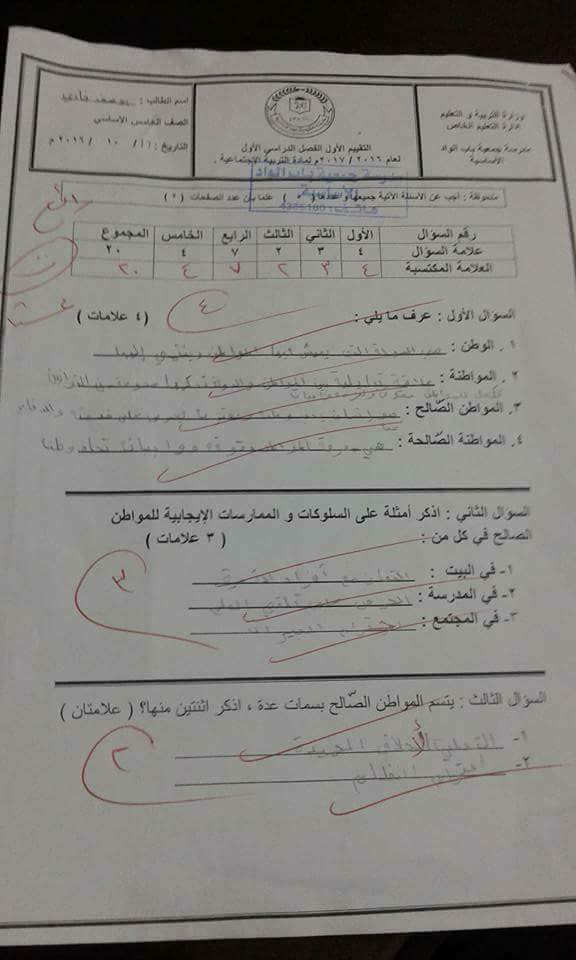 وزارة التربية و التعليم
إدارة التعليم الخاص
مدرسة جمعية باب الواد
الأساسية
التقييم الأول الفصل الدراسي الأول
لعام ٢٠١٦ / ٢٠١٧ م لمادة التربية الاجتماعية .
اسم الطالب : يوسف
الصف الخامس الأساسي
التاريخ : / ١٠ / ٢٠١٦ م
مدرسة جمعية باب الواد
الأساسية
ملحوظة : أجب عن الأسئلة الآتية جميعها وعددها ( ) علما بأن عدد الصفحات ( ٢ )
رائع
رقم السؤال الأول الثاني الثالث الرابع الخامس المجموع
علامة السؤال ٤ ٣ ٢ ٧ ٤ ٢٠
العلامة المكتسبة ٤ ٣ ٢ ٧ ٤ ٢٠
السؤال الأول : عرف ما يلي : ( ٤ علامات )
٤
١. الوطن : هي التي يعيش فيها المواطن وينتمي إليها
٢. المواطنة : علاقة تبادلية بين المواطن
٣. المواطن الصّالح :
٤. المواطنة الصّالحة : هي
السؤال الثاني : اذكر أمثلة على السلوكات و الممارسات الإيجابية للمواطن
الصالح في كل من : ( ٣ علامات )
٣
١- في البيت : التعاون مع أفراد الأسرة
٢- في المدرسة : الحرص على تلقي العلم
٣- في المجتمع : احترام الجيران
السؤال الثالث : يتسم المواطن الصّالح بسمات عدة ، اذكر اثنتين منها؟ ( علامتان )
٢
١- التحلي الأخلاق الحميدة
٢- احترام النظام